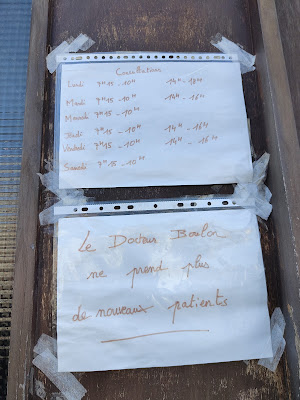 Consultations
Lundi 7H15 - 10H 14H - 18H
Mardi 7H15 - 10H 14H - 16H
Mercredi 7H15 - 10H
Jeudi 7H15 - 10H 14H - 16H
Vendredi 7H15 - 10H 14H - 16H
Samedi 7H15 - 10H
Le Docteur
ne prend plus
de nouveaux patients